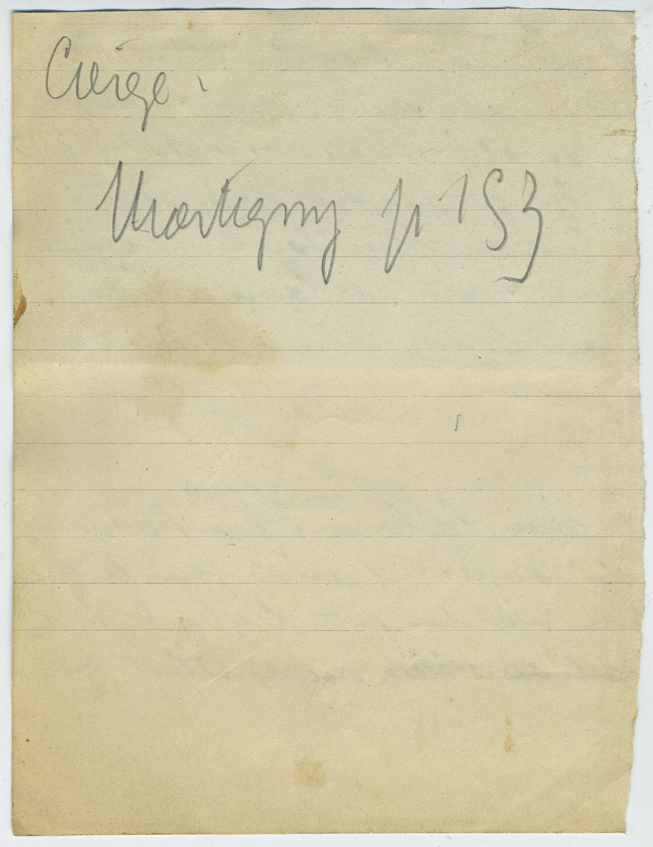 Cierge.
Martigny p 153